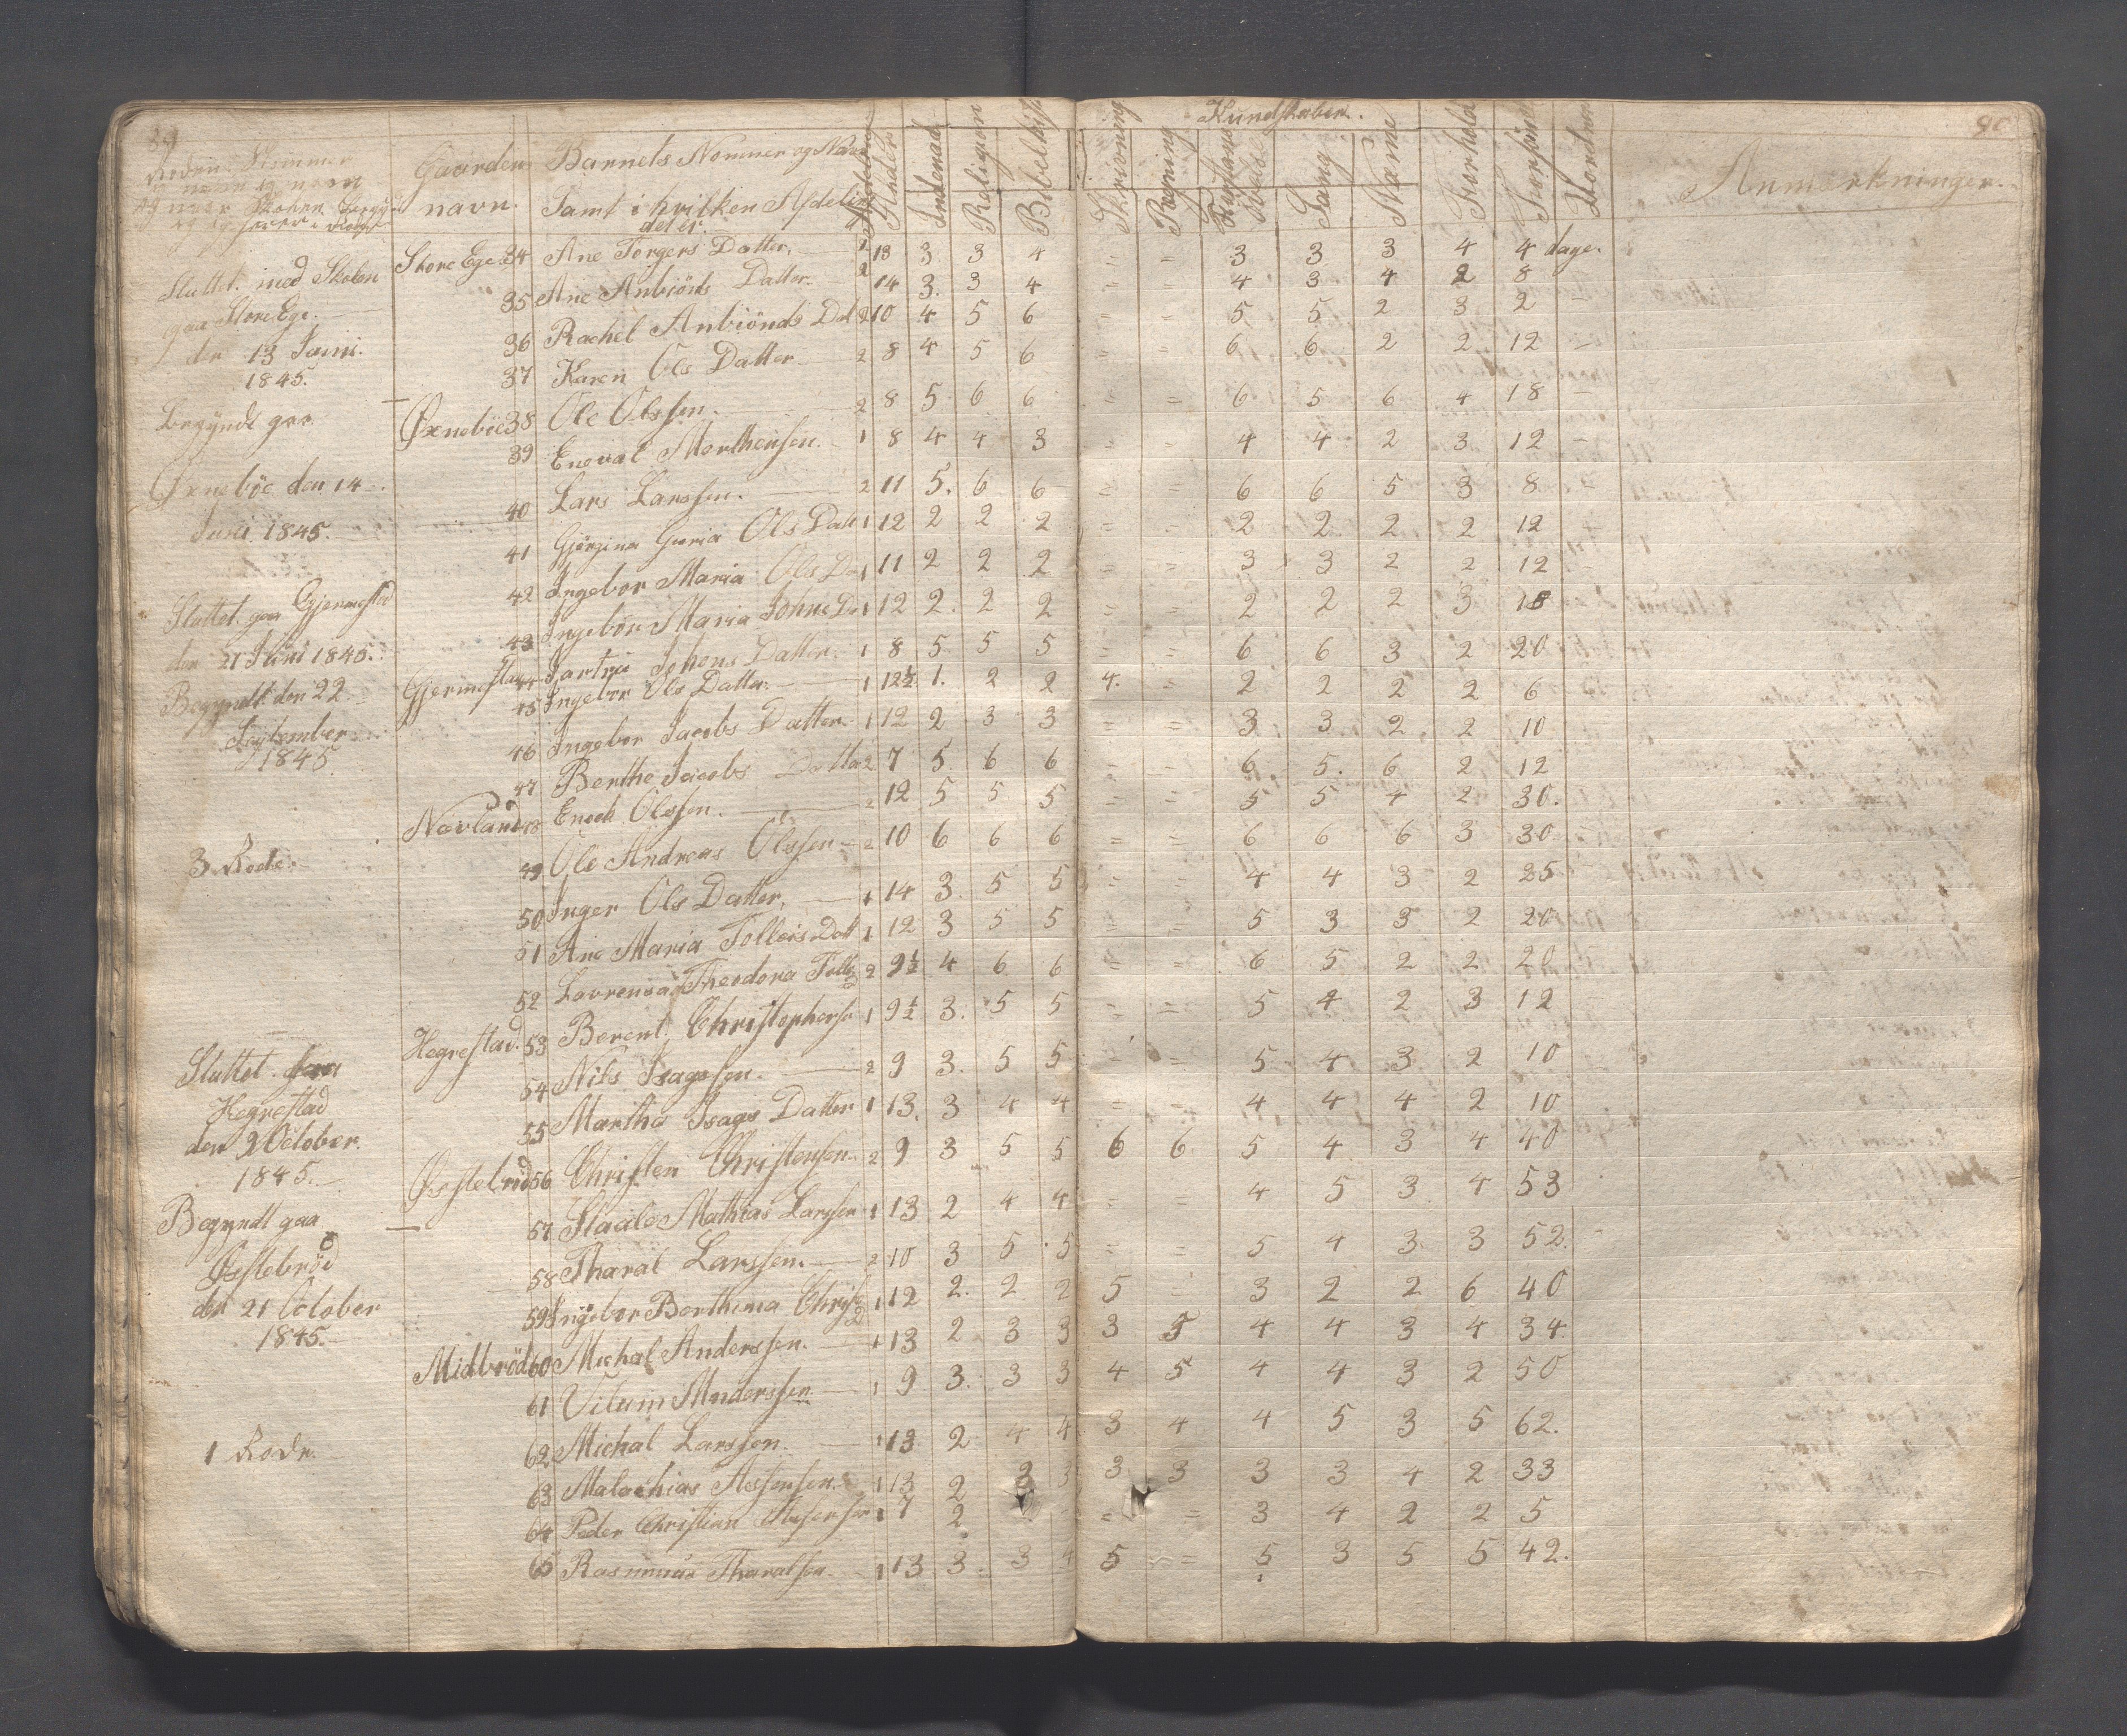 89 Kundskaber. 90
Roden Nommer Gaardens Barnets Nommer og Navn Alder Indenad Religion Skrivning Regning Sang Forhold Anmærkninger.
navn. Samt i hvilken Afdeling
det er.
Sluttet med Skolen Store Ege 34 Ane Torgers Datter. 1 18 3 3 4 = = 3 3 3 4 4 dage.
35 Ane Anbiönds Datter. 2 14 3. 3 4 = = 4 3 4 2 8
paa Store Ege. 36 Rachel Anbiönds Dat 2 10 4 5 6 = = 5 5 2 3 2
den 13 Juni. 37 Karen Ols Datter 2 8 4 5 6 = = 6 6 2 2 12
1845.
Begyndt paa Øxneböe 38 Ole Olssen. 2 8 5 6 6 = = 6 5 6 4 18
39 Enoval Morthensen. 1 8 4 4 3 = = 4 4 2 3 12
Øxneböe den 14 40 Lars Larssen. 2 11 5. 6 6 = = 6 6 5 3 8
Juni 1845. 41 Gjörgina Guria Ols Dat 1 12 2 2 2 = = 2 2 2 2 12
42 Ingebor Maria Ols D 1 11 2 2 2 = = 3 3 2 2 12
Sluttet paa Gjermestad 43 Ingebor Maria Johns D 1 12 2. 2 2 = = 2 2 2 3 18
den 21 Juni 1845. 44 Johons Datter. 1 8 5 5 5 = = 6 6 3 2 20
Begyndt den 22 Gjermestad 45 Ingebor Ols Datter. 1 12½ 1. 2 2 4. = 2 2 2 2 6
September 46 Ingebor Jacobs Datter 1 12 2 3 3 = = 3 3 2 2 10
1845 47 Berthe Jacobs Datter 2 7 5. 6 6 = = 6 5. 6 2 12
Nævland 48 Enoch Olssen. 2 12 5 5 5 = = 5 5 4 2 30.
3. Rode. 49 Ole Andreas Olssen 2 10 6 6 6 = = 6 6 6 3 30
50 Inger Ols Datter, 1 14 3. 5 5 = = 4 4 3 2 25
51 Ane Maria Tolleis Datt 1 12 3 5 5 = = 5 3 3 2 20
52 Lovrensa Theodora Tolle 2 9½ 4 6 6 = = 6 5 2 2 20
Hegrestad. 53 Berent Christophersen 1 9½ 3. 5 5 = = 5 4 2 3 12
Sluttet paa 54 Nils Isagssen. 2 9 3. 5 5 = = 5 4 3 2 10
Hegrestad 55 Martha Isags Datter 1 13. 3 4 4 = = 4 4 4 2 10
den 2 October. Østebröd 56 Christen Christensen. 2 9 3 5 5 6 6 5 4 3 4 40
1845. 57 Staale Mathias Larssen 1 13 2 4 4 = = 4 5 3 4 53
Begyndt paa 58 Tharal Larssen. 2 10 3 5 5 = = 5 4 3 3 52.
Østebröd 59 Ingebor Berthina Christ 1 12 2. 2 2 5 = 3 2 2 6 40
den 21 October
1845. Midbröd 60 Michal Anderssen. 1 13 2 3 3 3 5 4 4 3 4 34.
61 Vilum Anderssen 1 9 3. 3 3 4 5 4 4 3 2 50
1 Rode. 62 Michal Larssen. 1 13 2 4 4 3 4 4 5 3 5 62.
63 Malachias Assensen. 1 13 2 3 3 3 3 3 3 4 2 33
64 Peder Christian 1 7 2 = = 3 4 2 2 5
65 Rasmus Tharalsen 1 13 3 3 4 5 = 5 3 5 5 42.